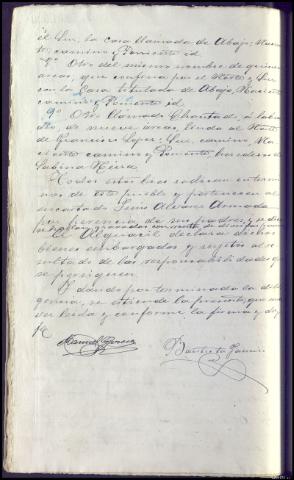 el Sur, la casa llamada de Abajo, Nacien
te, camino y Poniente id.
8º Otro del mismo nombre de quince
areas, que confina por el Norte y Sur
con la Casa titulada de Abajo, Naciente
camino y Poniente id.
9º Otro llamado Chantad, á laba
dio, de nueve areas, linda al Norte
de Francisco Lopez, Sur, camino, Na
ciente camino y Poniente herederos de
Sabina Neira
Todos estos bienes radican en termi
nos de este pueblo y pertenecen al
encartado Jesús Alvarez
por herencia de sus padres, y se dice
El Alguacil declaró dichos
bienes embargados y sujetos al re
sultado de las responsabilidades que
se persiguen.
Y dando por terminada la dili
gencia, se extiende la presente, que una
vez leida y conforme la firma y doy
fe
Manuel
Bautista